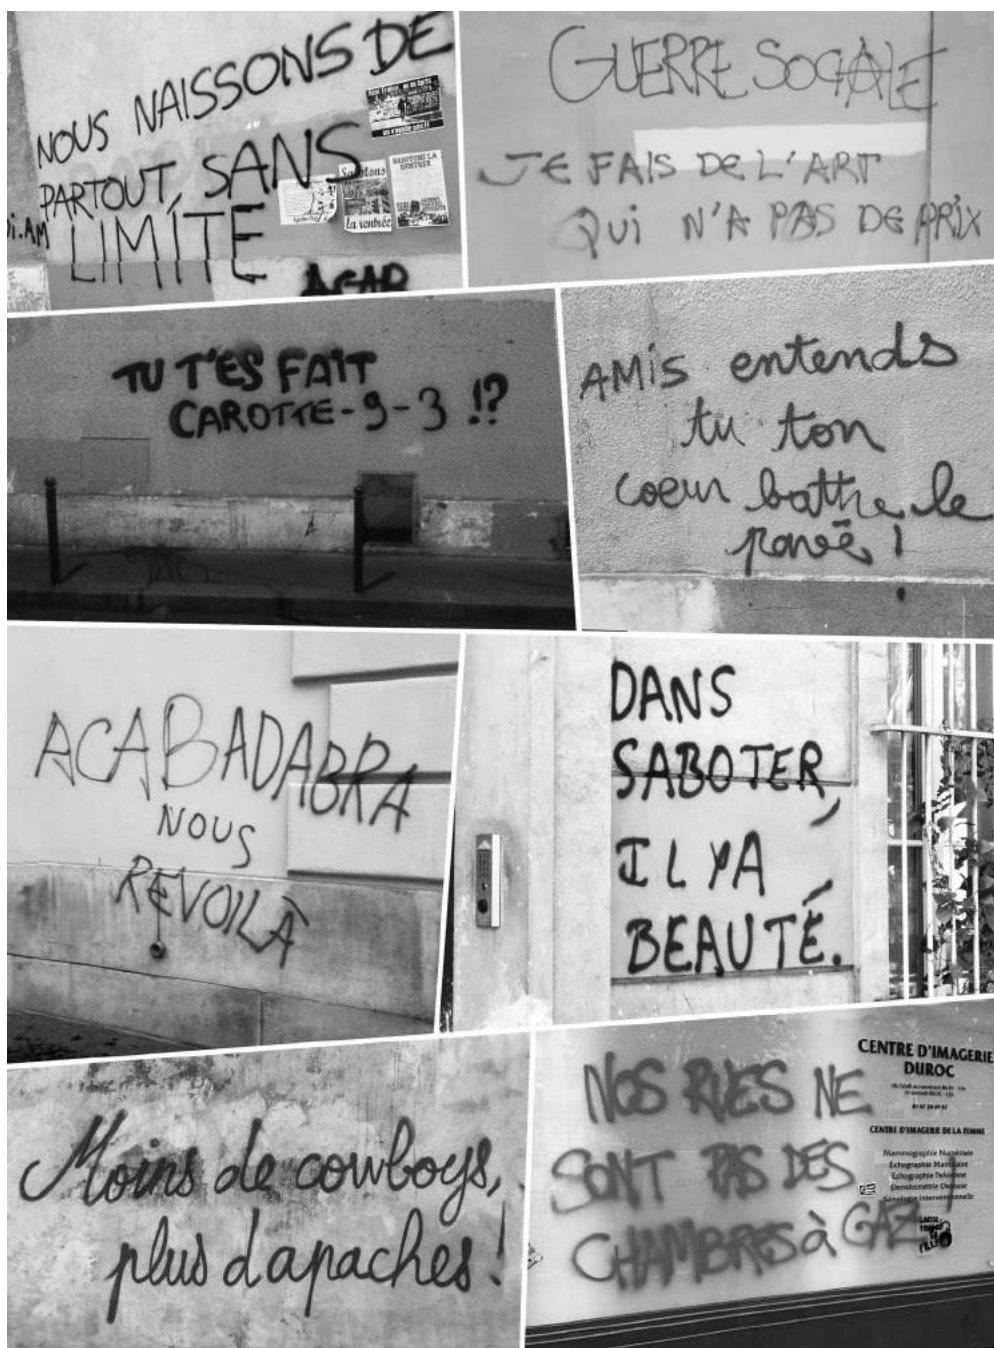 NOUS NAISSONS DE
PARTOUT SANS
LIMITE
Sabotons
la rentrée
SABOTONS LA
RENTREE
ACAB
GUERRE SOCIALE
JE FAIS DE L'ART
QUI N'A PAS DE PRIX
TU T'ES FAIT
CAROTTE-9-3 !?
AMIS entends
tu ton
coeur battre le
pavé !
ACABADABRA
NOUS
REVOILÀ
DANS
SABOTER,
IL Y A
BEAUTÉ.
Moins de cowboys,
plus d'apaches !
NOS RUES NE
SONT PAS DES
CHAMBRES à GAZ !
CENTRE D'IMAGERIE
DUROC
CENTRE D'IMAGERIE DE LA FEMME
Mammographie Numérisée
Echographie Mammaire
Echographie Pelvienne
Densitométrie Osseuse
Sénologie Interventionnelle